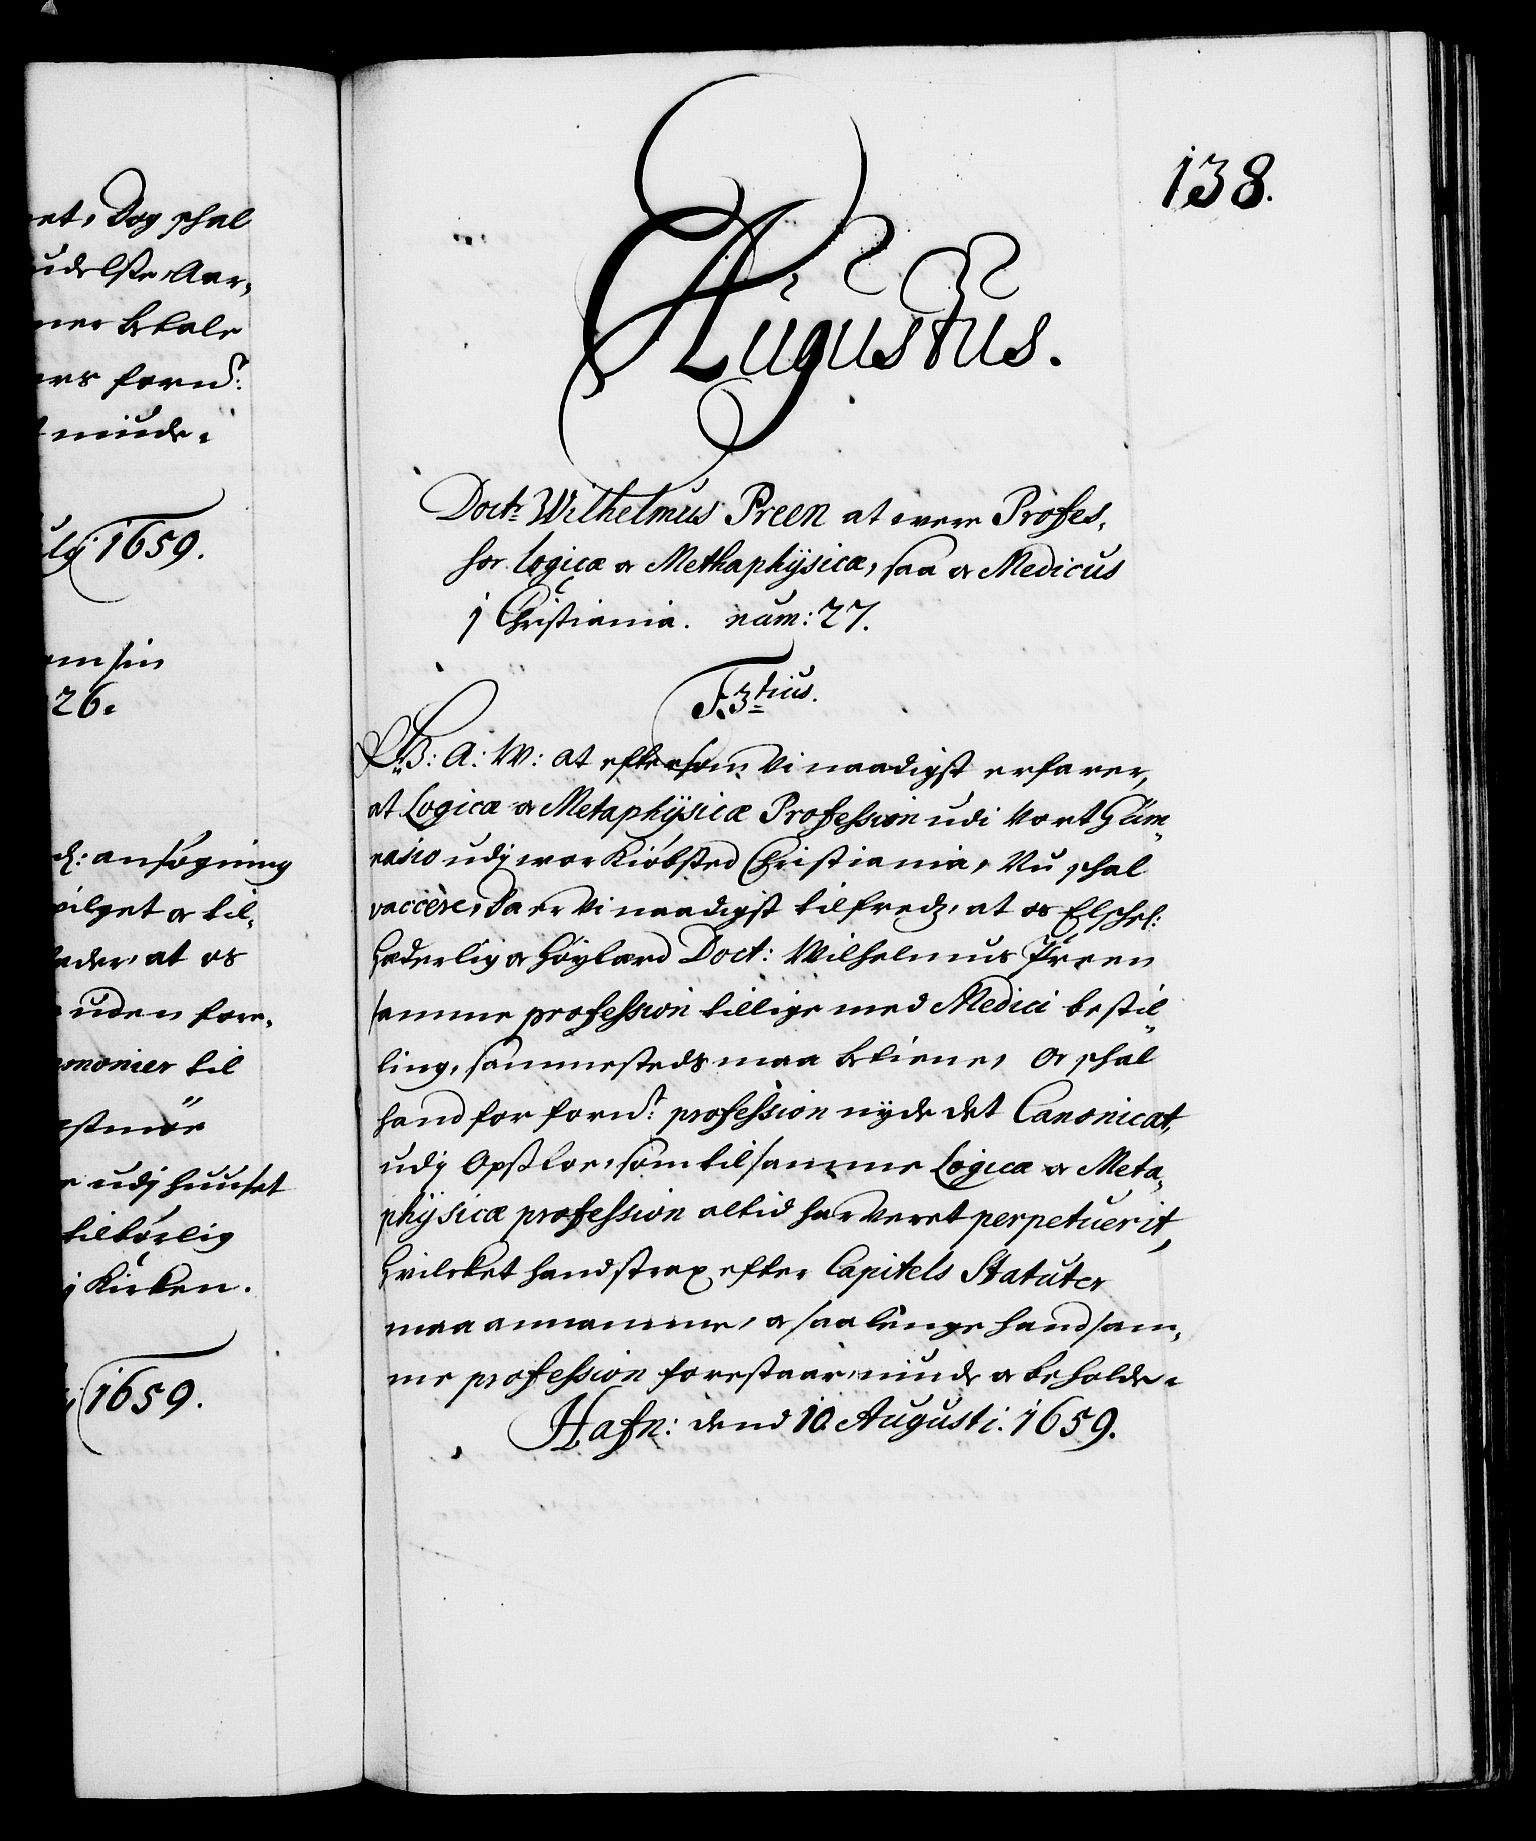 et, Dog schal
udelste Aar,
ner betale
ers fornd:
miude.
ulij 1659.
om sin
26.
d: ansøgning
vilget oc til,
ader, at os
uden fore,
ononier til
estmöe
udj huuset
tilbørlig
j Kircken.
1659.
138.
Augustus.
Doctr Wilhelmus Preen at were Profes,
sor Logicæ oc Methaphÿsicæ, saa oc Medicus
j Christiania. num: 27.
F. 3tius.
G. A. W: at eftersom Vi naadigst erfarer,
at Logicæ oc Metaphÿsicæ Profession udi Vort Güm
nasio udj wor Kiöbsted Christiania, Nu schal
vaccere, Da er Vi naadigst tilfredz, at os Elschel:
Hæderlig oc Høylærd Doct: Wilhelmus Preen
samme profession tillige med Medici bestil
ling, sammesteds maa betiene, Oc schal
hand for fornd: profession nyde det Canonicat,
udj Opsloe, som til samme Logicæ oc Meta,
phÿsicæ profession altid har veret perpetuerit,
Hvilcket hand strax efter Capitels Statuter
maa annamme, oc saa lenge hand sam,
me profession forestaar, niude oc beholde.
Hafn: dend 10 Augusti. 1659.